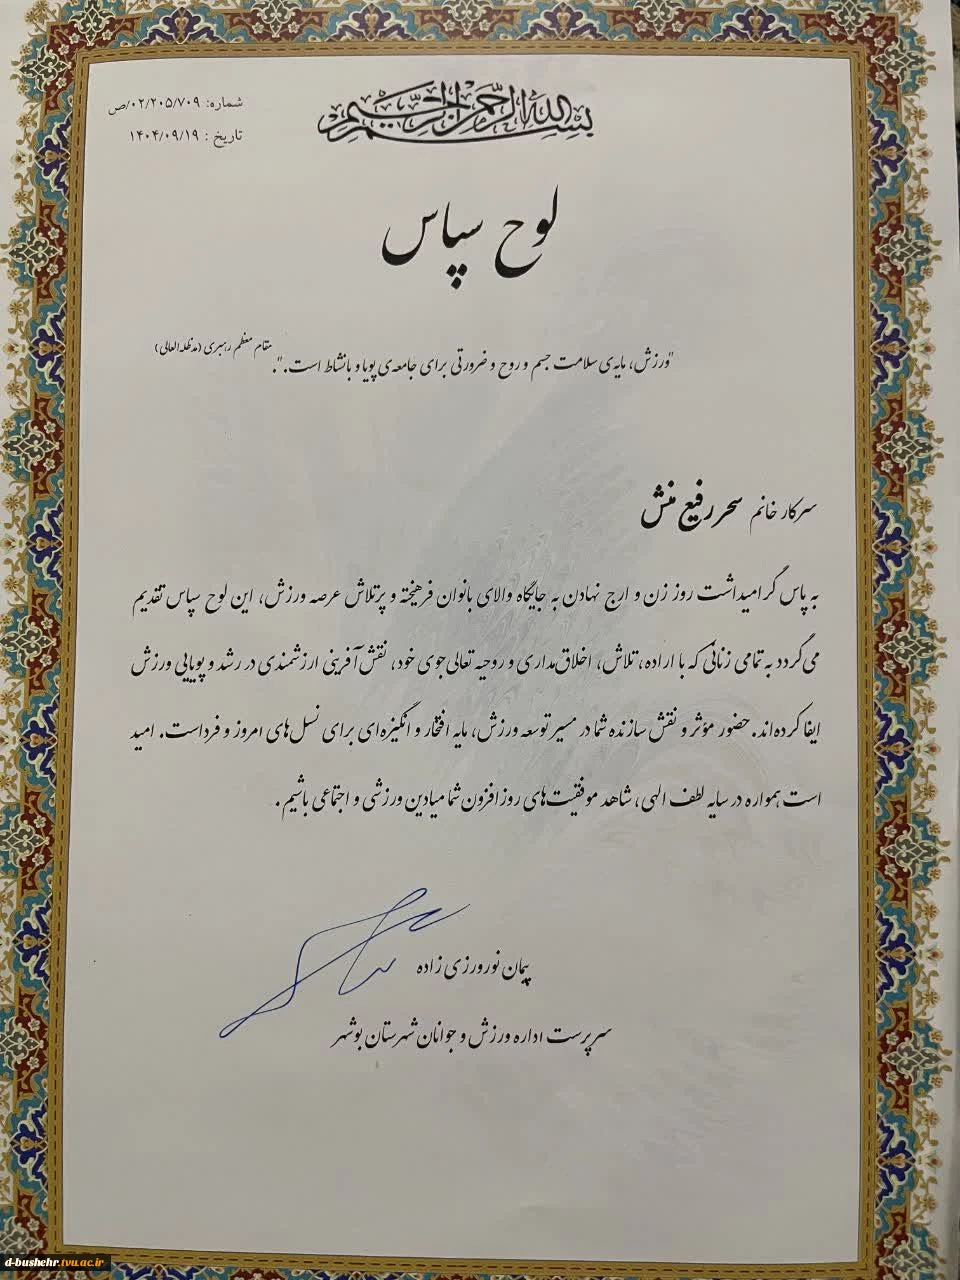 بسم الله الرحمن الرحیم
شماره: ۰۲/۲۰۵/۷۰۹/ص
تاریخ : ۱۴۰۴/۰۹/۱۹
لوح سپاس
"ورزش، مایه‌ی سلامت جسم و روح و ضرورتی برای جامعه‌ی پویا و بانشاط است.".
مقام معظم رهبری (مدظله العالی)
سرکار خانم سحر رفیع منش
به پاس گرامیداشت روز زن و ارج نهادن به جایگاه والای بانوان فرهیخته و پرتلاش عرصه ورزش، این لوح سپاس تقدیم
می‌گردد به تمامی زنانی که با اراده، تلاش، اخلاق‌مداری و روحیه تعالی‌جوی خود، نقش‌آفرینی ارزشمندی در رشد و پویایی ورزش
ایفا کرده‌اند. حضور مؤثر و نقش سازنده شما در مسیر توسعه ورزش، مایه افتخار و انگیزه‌ای برای نسل‌های امروز و فرداست. امید
است همواره در سایه لطف الهی، شاهد موفقیت‌های روزافزون شما میادین ورزشی و اجتماعی باشیم.
پیمان نورورزی زاده
سرپرست اداره ورزش و جوانان شهرستان بوشهر
d-bushehr.tvu.ac.ir